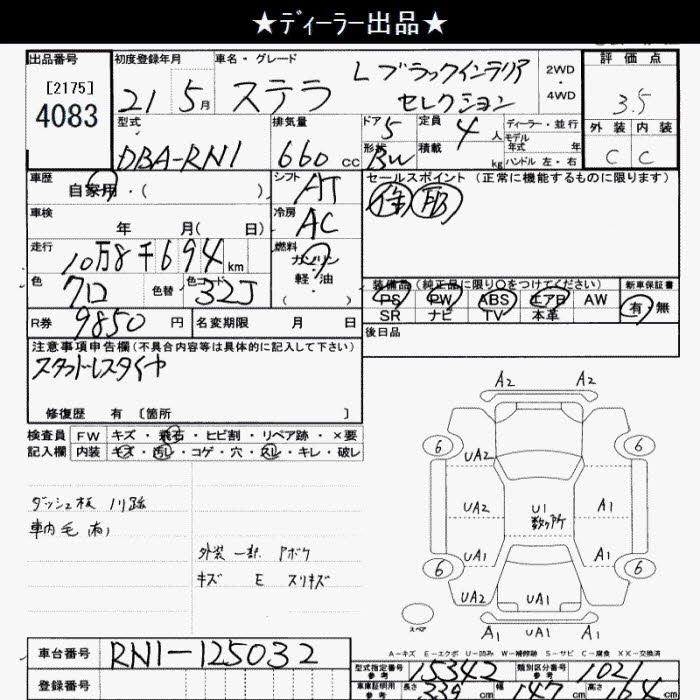 ★ディーラー出品★
出品番号 初度登録年月 車名・グレード 評価点
[2175] 4083
21 5月 ステラ Lブラックインテリア セレクション 2WD・4WD 3.5
型式 排気量 ドア 5 定員 4人 ディーラー・並行 外装 内装
DBA-RN1 660cc 形状 BW 積載 kg モデル年式 年 C C
ハンドル 左・右
車歴 自家用・( ) シフト AT セールスポイント (正常に機能するものに限ります)
車検 年 月( 日) 冷房 AC
走行 10万8千694km 燃料 ガソリン・軽・油 ( )
装備品 (純正品に限り○をつけてください) 新車保証書
色 クロ 色替 色コード 32J PS PW ABS エアB AW 有・無
SR ナビ TV 本革
R券 9850円 名変期限 月 日 後日品
注意事項申告欄(不具合内容等は具体的に記入して下さい)
スタッドレスタイヤ
修復歴 有 [箇所 ]
検査員記入欄 FW キズ・飛石・ヒビ割・リペア跡・×要
内装 キズ・汚レ・コゲ・穴・スレ・キレ・破レ
ダッシュ板 ノリ跡
車内 毛 有り
外装 一部 アボケ
キズ E スリキズ
A2 A2
6 6
UA2
UA2 U1 数ヶ所 A1
UA1 A1
6 6
UA2 UA1
A1 UA1 A1
スペア
A-キズ E-エクボ U-凹み W-補修跡 S-サビ C-腐食 XX-交換済
車台番号 RN1-125032 型式指定番号 参考 15342 類別区分番号 参考 1021
登録番号 車庫証明用 参考 長さ 339cm 幅 147cm 高さ cm